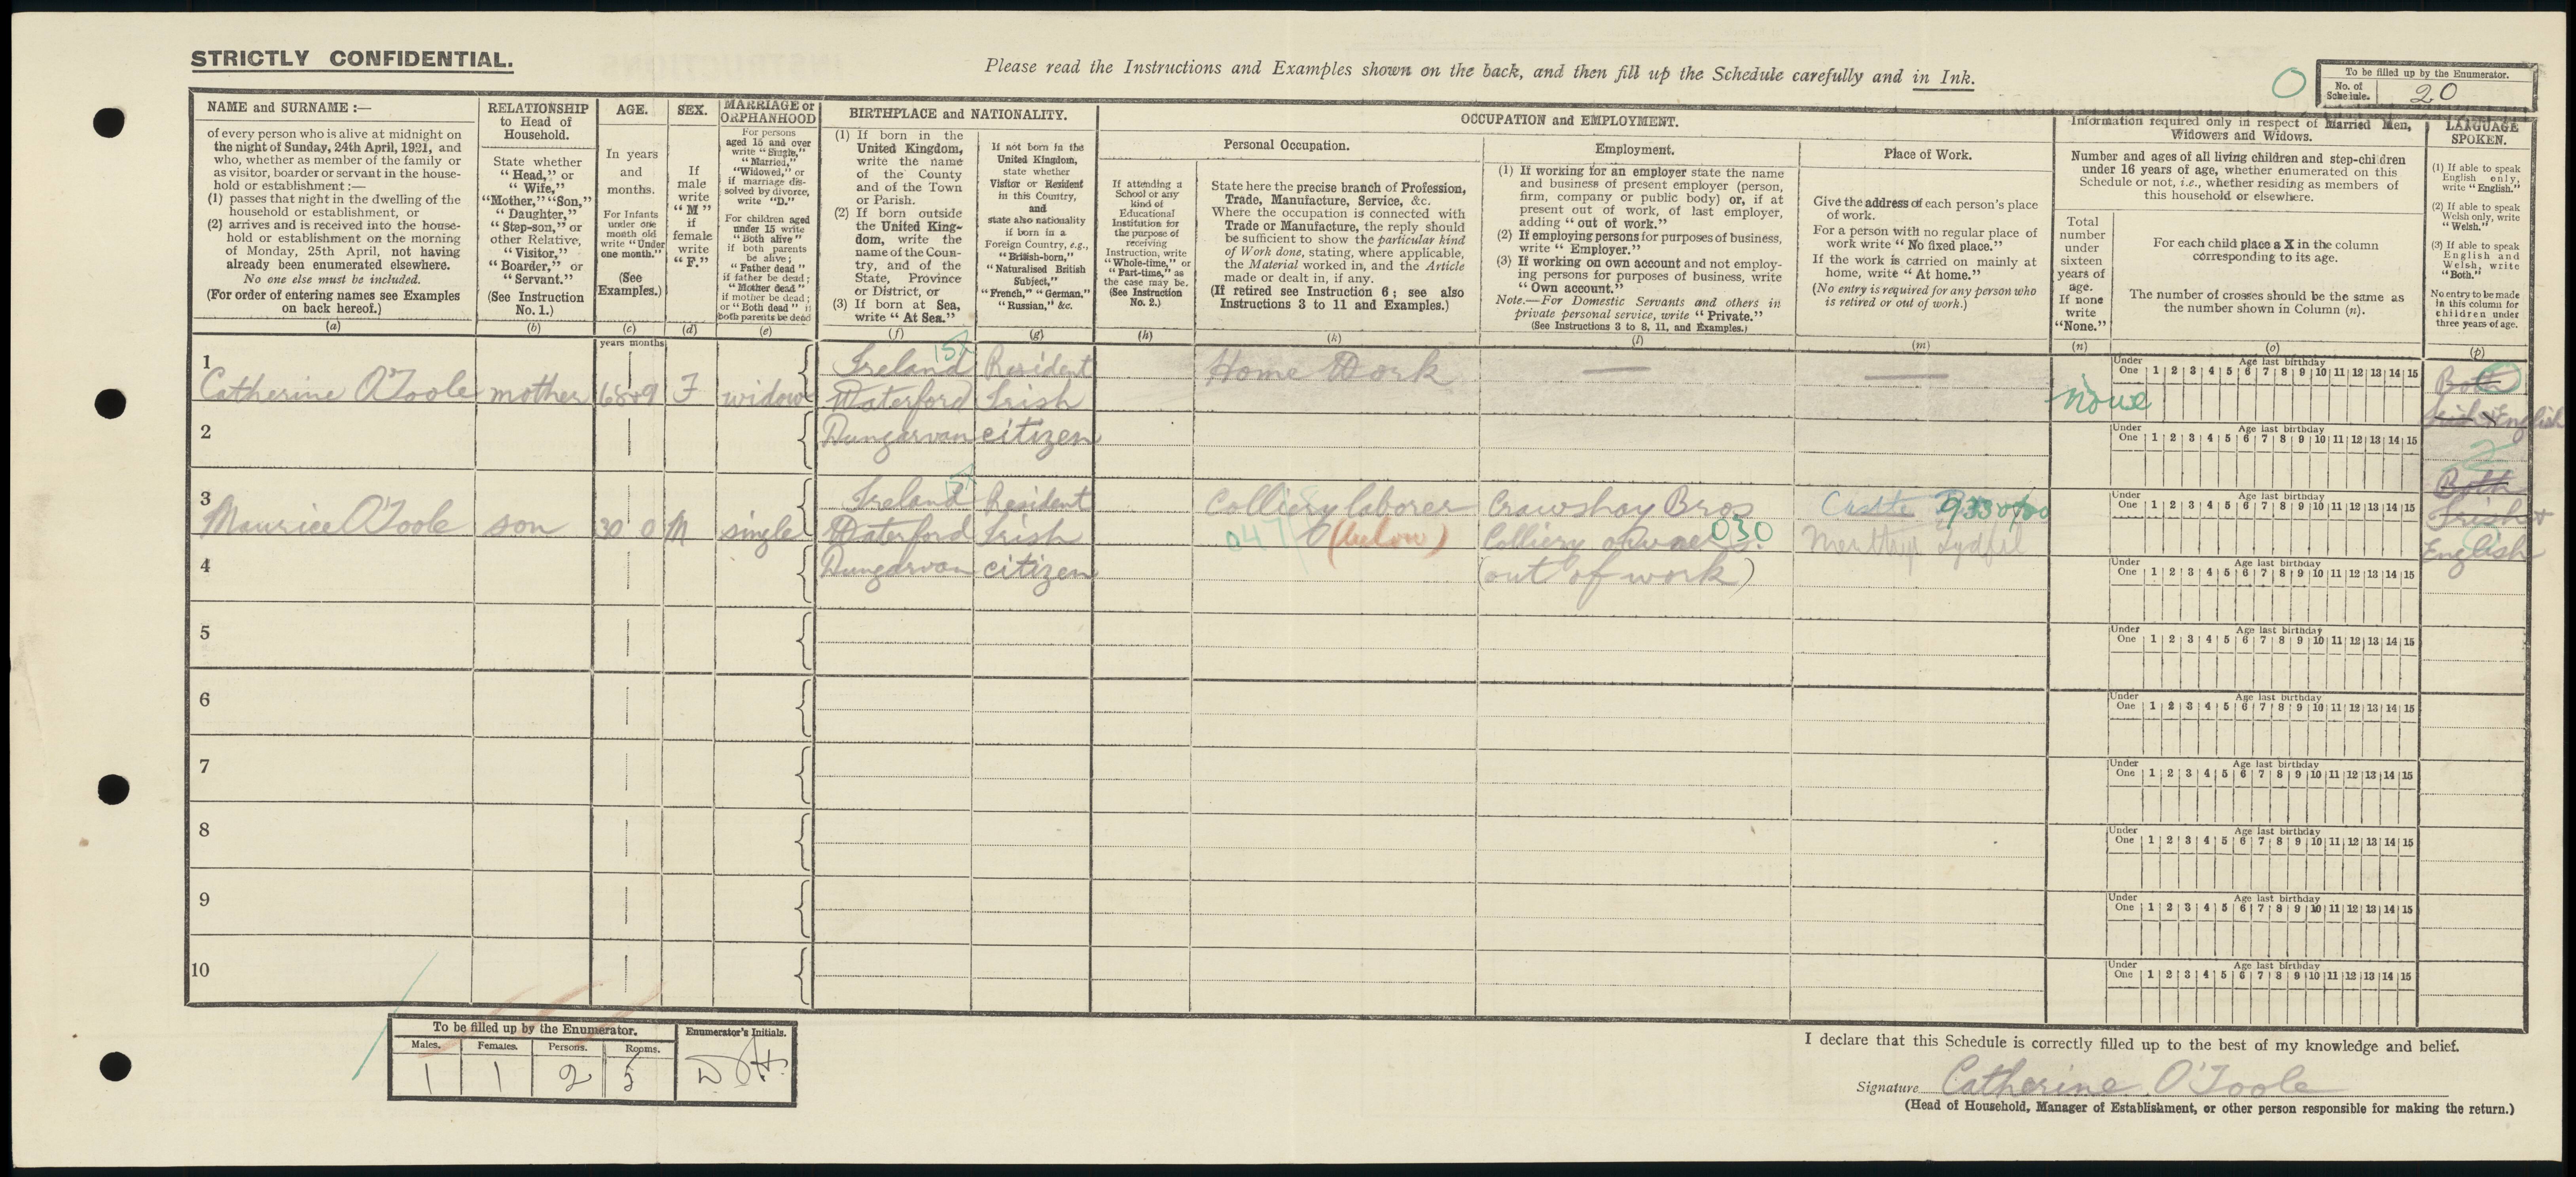 STRICTLY CONFIDENTIAL.
Please read the Instructions and Examples shown on the back, and then fill up the Schedule carefully and in Ink.
0
To be filled up by the Enumerator.
No. of Schedule.
20
NAME and SURNAME :—
of every person who is alive at midnight on
the night of Sunday, 24th April, 1921, and
who, whether as member of the family or
as visitor, boarder or servant in the house-
hold or establishment :—
(1) passes that night in the dwelling of the
household or establishment, or
(2) arrives and is received into the house-
hold or establishment on the morning
of Monday, 25th April, not having
already been enumerated elsewhere.
No one else must be included.
(For order of entering names see Examples
on back hereof.)
(a)
RELATIONSHIP
to Head of
Household.
State whether
"Head," or
"Wife,"
"Mother," "Son,"
"Daughter,"
"Step-son," or
other Relative,
"Visitor,"
"Boarder," or
"Servant."
(See Instruction
No. 1.)
(b)
AGE.
In years
and
months.
For Infants
under one
month old
write "Under
one month."
(See
Examples.)
(c)
SEX.
If
male
write
"M"
if
female
write
"F."
(d)
MARRIAGE or
ORPHANHOOD
For persons
aged 15 and over
write "Single,"
"Married,"
"Widowed," or
if marriage dis-
solved by divorce,
write "D."
For children aged
under 15 write
"Both alive"
if both parents
be alive;
"Father dead"
if father be dead;
"Mother dead"
if mother be dead;
or "Both dead" if
both parents be dead
(e)
BIRTHPLACE and NATIONALITY.
(1) If born in the
United Kingdom,
write the name
of the County
and of the Town
or Parish.
(2) If born outside
the United King-
dom, write the
name of the Coun-
try, and of the
State, Province
or District, or
(3) If born at Sea,
write "At Sea."
(f)
If not born in the
United Kingdom,
state whether
Visitor or Resident
in this Country,
and
state also nationality
if born in a
Foreign Country, e.g.,
"British-born,"
"Naturalised British
Subject,"
"French," "German,"
"Russian," &c.
(g)
OCCUPATION and EMPLOYMENT.
If attending a
School or any
kind of
Educational
Institution for
the purpose of
receiving
Instruction, write
"Whole-time," or
"Part-time," as
the case may be.
(See Instruction
No. 2.)
(h)
Personal Occupation.
State here the precise branch of Profession,
Trade, Manufacture, Service, &c.
Where the occupation is connected with
Trade or Manufacture, the reply should
be sufficient to show the particular kind
of Work done, stating, where applicable,
the Material worked in, and the Article
made or dealt in, if any.
(If retired see Instruction 6; see also
Instructions 3 to 11 and Examples.)
(k)
Employment.
(1) If working for an employer state the name
and business of present employer (person,
firm, company or public body) or, if at
present out of work, of last employer,
adding "out of work."
(2) If employing persons for purposes of business,
write "Employer."
(3) If working on own account and not employ-
ing persons for purposes of business, write
"Own account."
Note.—For Domestic Servants and others in
private personal service, write "Private."
(See Instructions 3 to 8, 11, and Examples.)
(l)
Place of Work.
Give the address of each person's place
of work.
For a person with no regular place of
work write "No fixed place."
If the work is carried on mainly at
home, write "At home."
(No entry is required for any person who
is retired or out of work.)
(m)
Information required only in respect of Married Men,
Widowers and Widows.
Number and ages of all living children and step-children
under 16 years of age, whether enumerated on this
Schedule or not, i.e., whether residing as members of
this household or elsewhere.
Total
number
under
sixteen
years of
age.
If none
write
"None."
(n)
For each child place a X in the column
corresponding to its age.
The number of crosses should be the same as
the number shown in Column (n).
(o)
LANGUAGE
SPOKEN.
(1) If able to speak
English only,
write "English."
(2) If able to speak
Welsh only, write
"Welsh."
(3) If able to speak
English and
Welsh, write
"Both."
No entry to be made
in this column for
children under
three years of age.
(p)
years months
1
Catherine O'Toole mother 68 9 F widow
Ireland Waterford Dungarvan
Resident Irish citizen
Home Work — —
None
Both
Irish & English
Under One 1 2 3 4 5 6 7 8 9 10 11 12 13 14 15
Age last birthday
2
Under One 1 2 3 4 5 6 7 8 9 10 11 12 13 14 15
Age last birthday
3
Maurice O'Toole son 30 0 M single
Ireland Waterford Dungarvan
Resident Irish citizen
Colliery laborer
047
(below)
Crawshay Bros
Colliery owners.
030
(out of work)
Merthyr Tydfil
Both
Irish &
English
Under One 1 2 3 4 5 6 7 8 9 10 11 12 13 14 15
Age last birthday
4
Under One 1 2 3 4 5 6 7 8 9 10 11 12 13 14 15
Age last birthday
5
Under One 1 2 3 4 5 6 7 8 9 10 11 12 13 14 15
Age last birthday
6
Under One 1 2 3 4 5 6 7 8 9 10 11 12 13 14 15
Age last birthday
7
Under One 1 2 3 4 5 6 7 8 9 10 11 12 13 14 15
Age last birthday
8
Under One 1 2 3 4 5 6 7 8 9 10 11 12 13 14 15
Age last birthday
9
Under One 1 2 3 4 5 6 7 8 9 10 11 12 13 14 15
Age last birthday
10
Under One 1 2 3 4 5 6 7 8 9 10 11 12 13 14 15
Age last birthday
To be filled up by the Enumerator.
Enumerator's Initials.
Males. Females. Persons. Rooms.
1 1 2 5
I declare that this Schedule is correctly filled up to the best of my knowledge and belief.
Signature Catherine O'Toole
(Head of Household, Manager of Establishment, or other person responsible for making the return.)